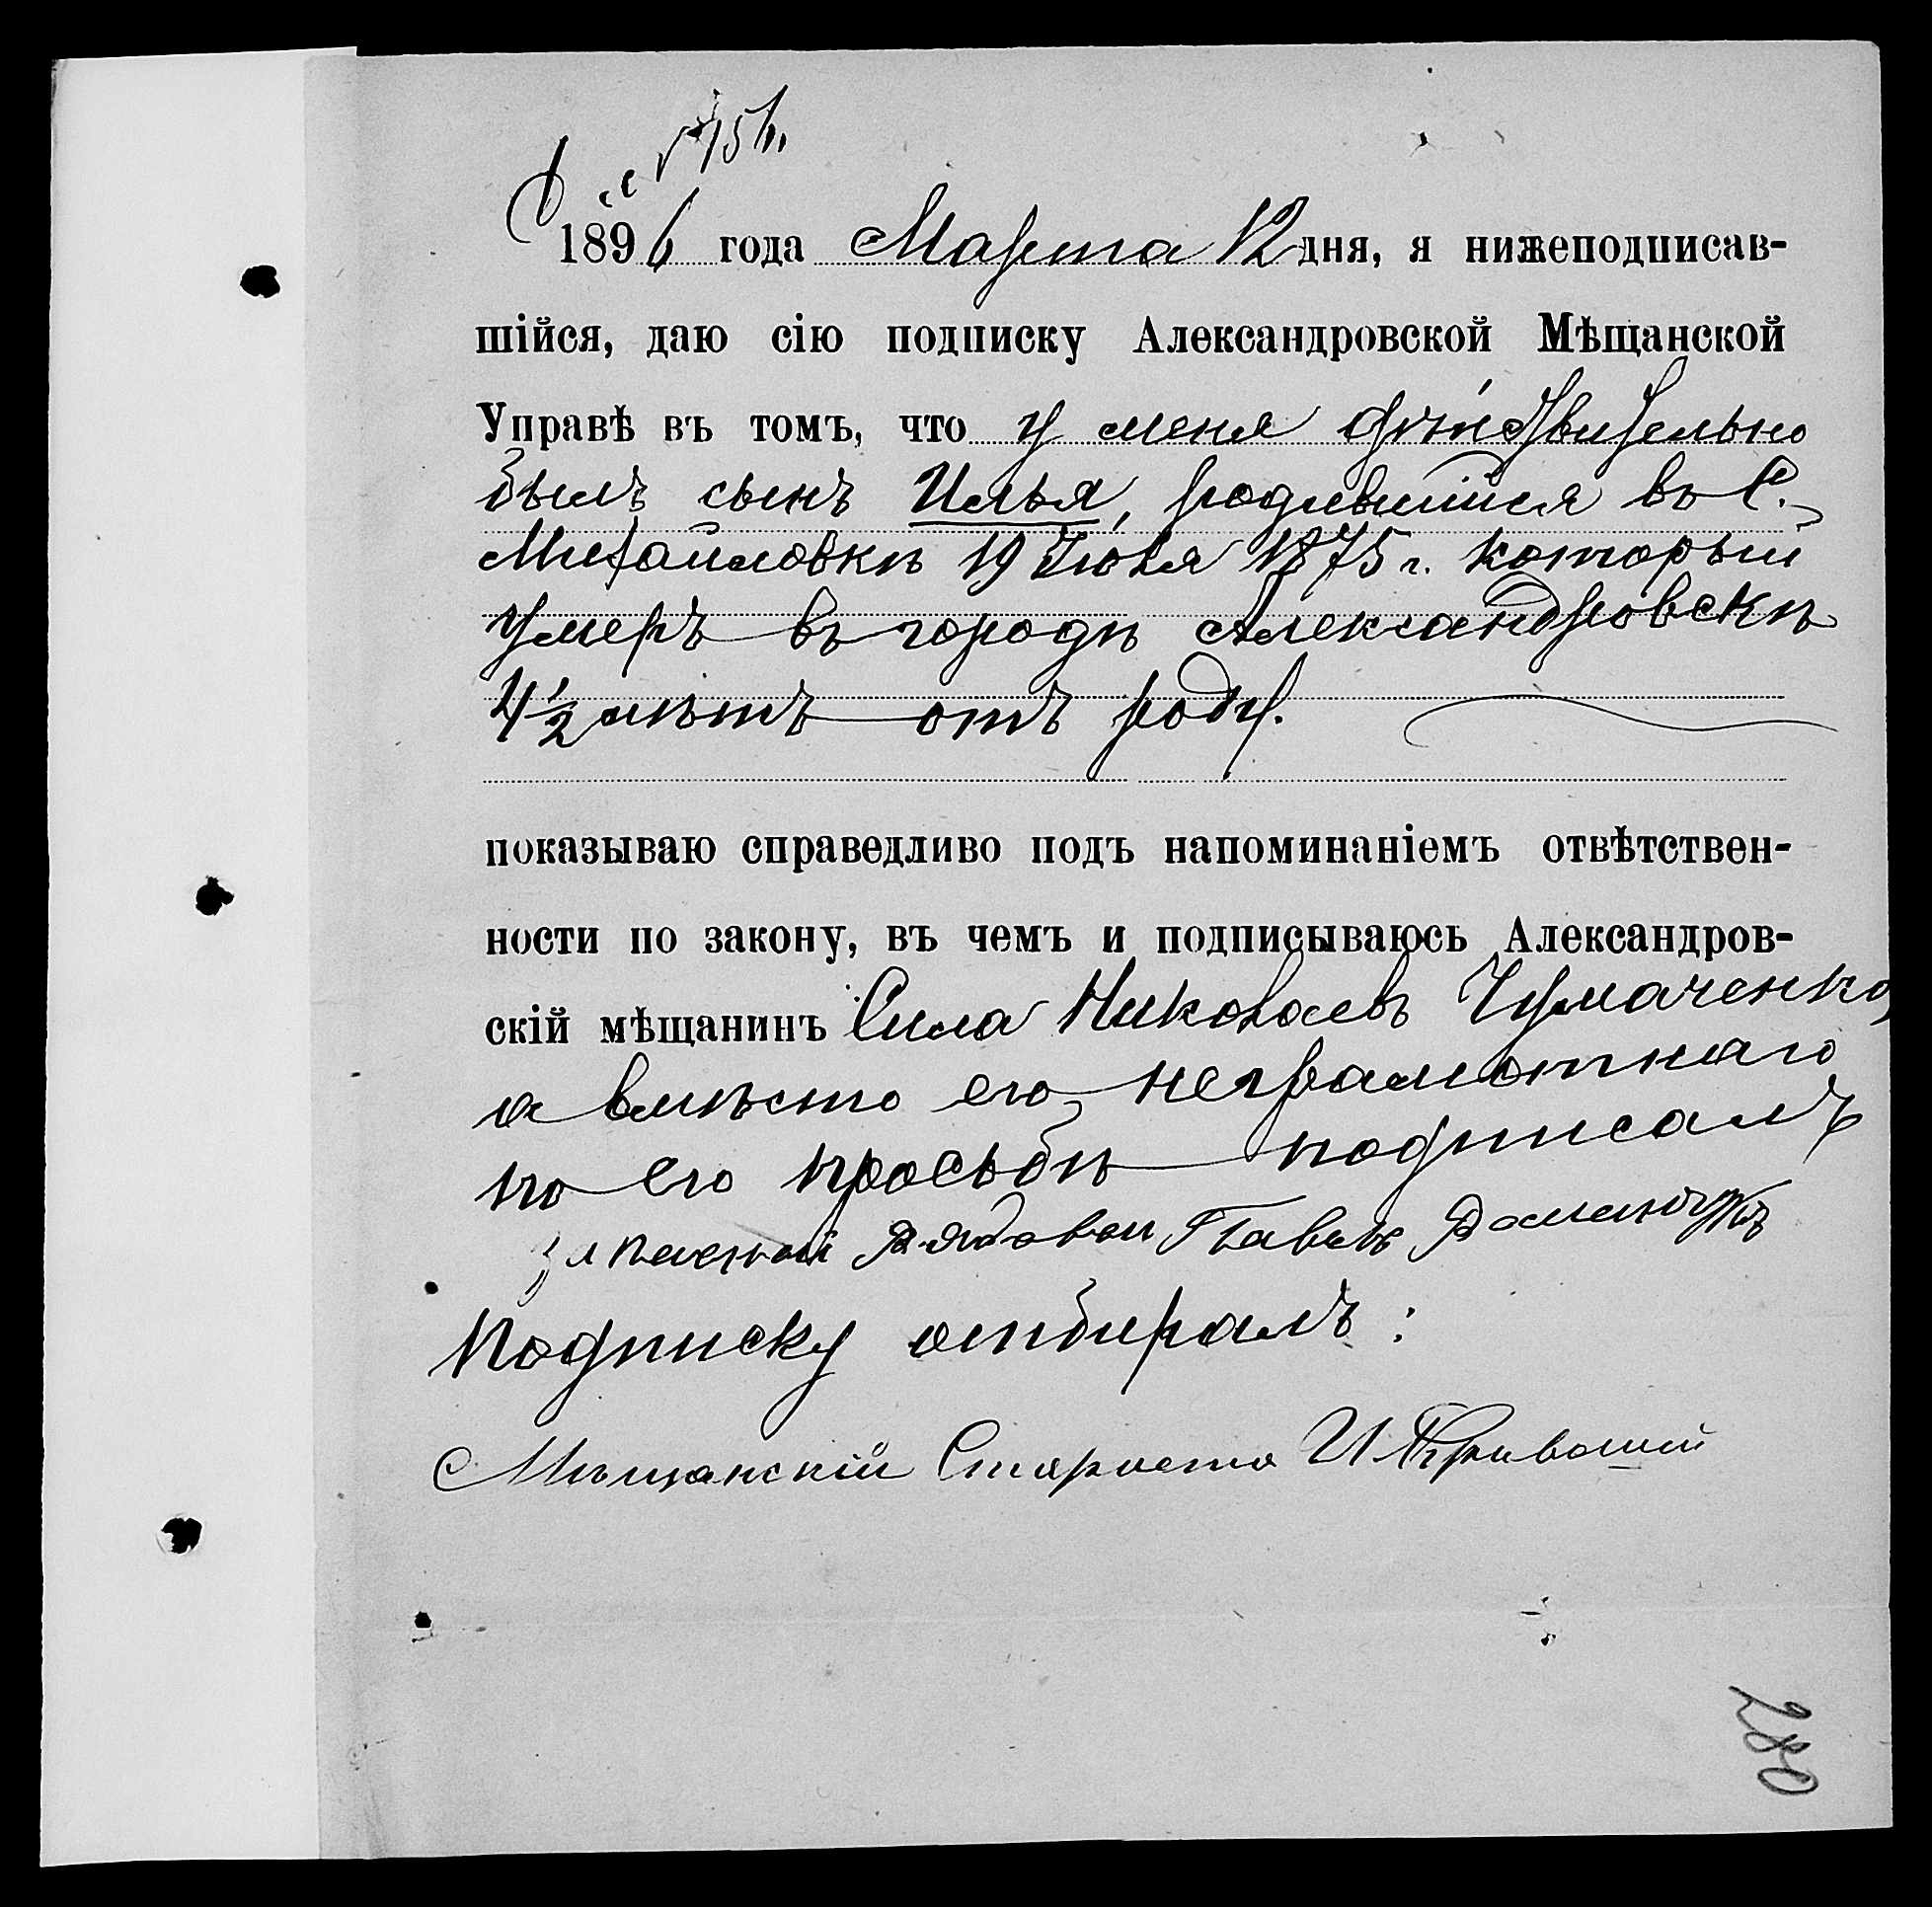 1896 года Марта 12 дня, я нижеподписав-
шійся, даю сію подписку Александровской Мѣщанской
Управѣ въ томъ, что у меня дѣйствительно
былъ сынъ Илья, родившійся въ с.
Михайловкѣ 19 Іюля 1875 г. который
умеръ въ городѣ Александровскѣ
4½ лѣтъ отъ роду.
показываю справедливо подъ напоминаніемъ отвѣтствен-
ности по закону, въ чемъ и подписываюсь Александров-
скій мѣщанинъ Сила Николаевъ Чумаченко,
а вмѣсто его неграмотнаго
по его просьбѣ подписалъ
запасной рядовой Павелъ
Подписку отбиралъ:
Мѣщанскій Староста И
280